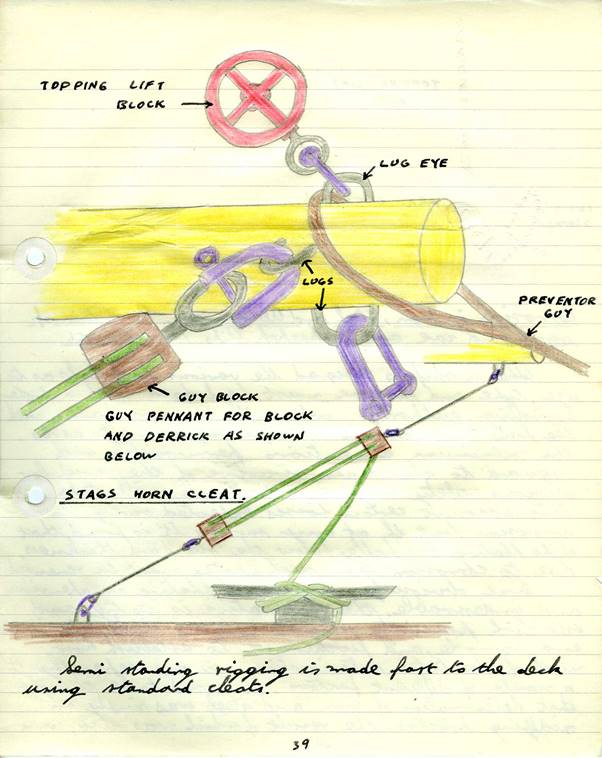 TOPPING LIFT
BLOCK
LUG EYE
LUGS
PREVENTOR
GUY
GUY BLOCK
GUY PENNANT FOR BLOCK
AND DERRICK AS SHOWN
BELOW
STAGS HORN CLEAT.
Semi standing rigging is made fast to the deck
using standard cleats.
39